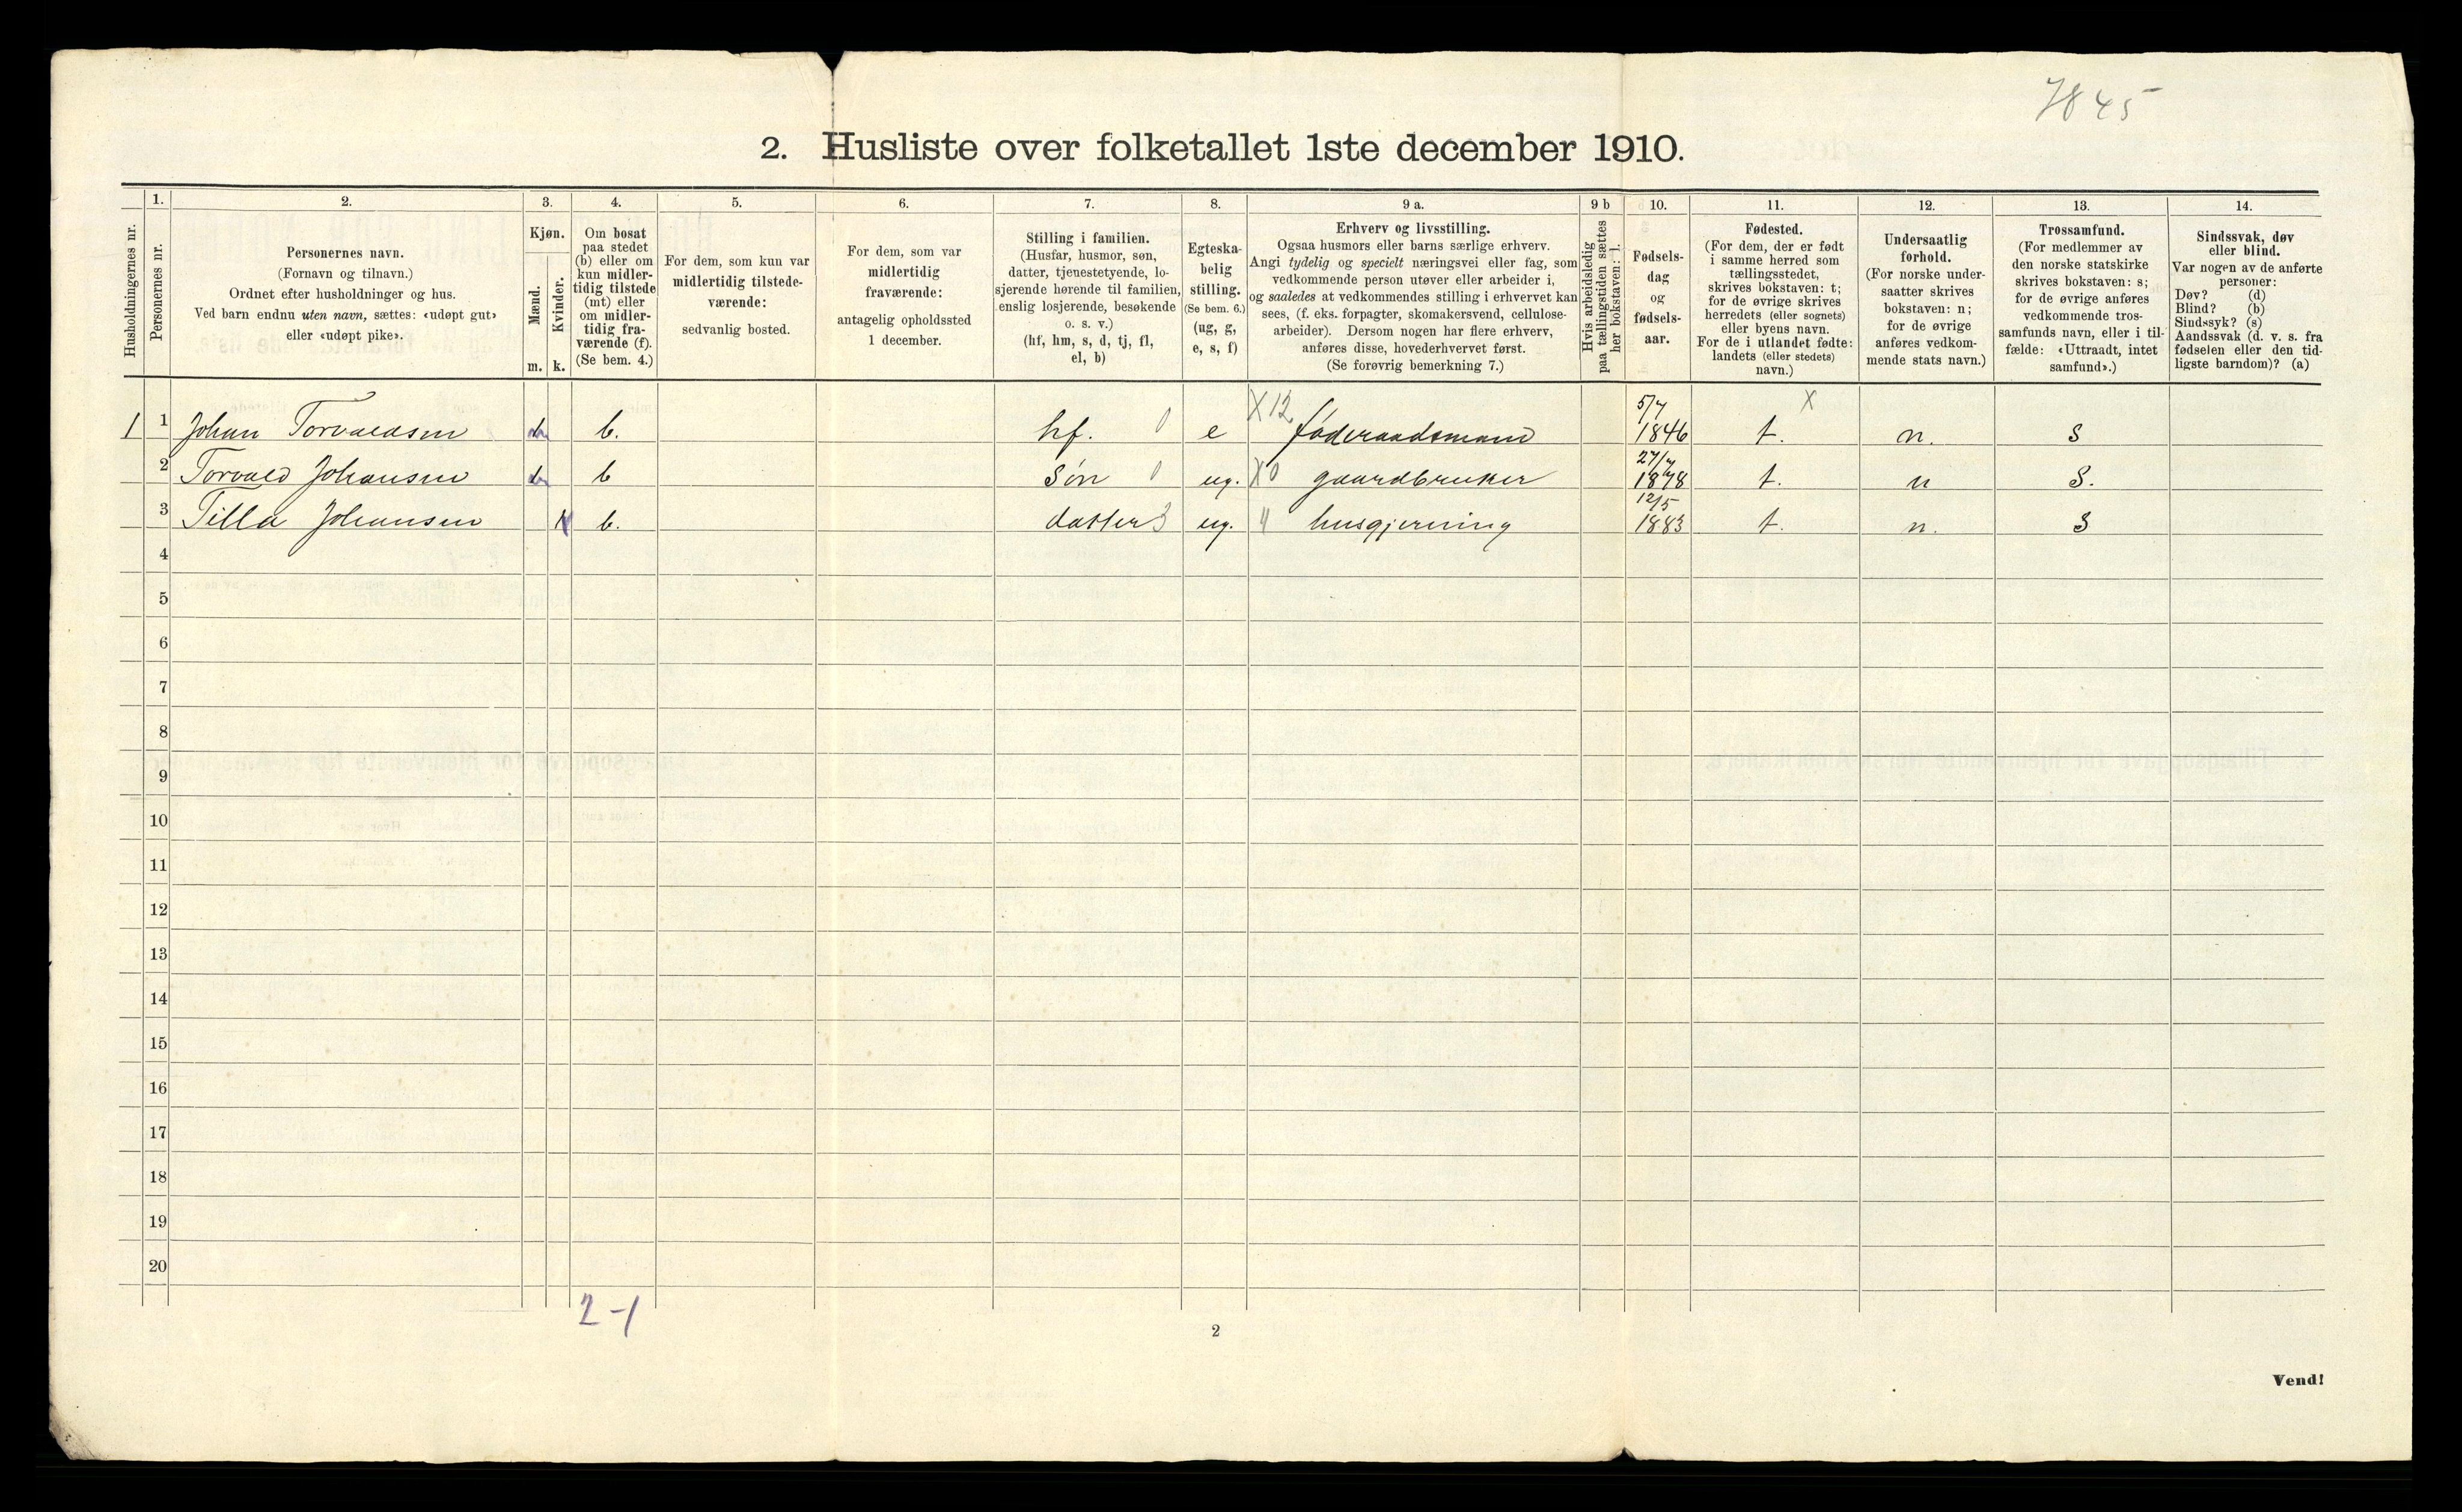 7845
2. Husliste over folketallet 1ste december 1910.
Husholdningernes nr.
1.
Personernes nr.
2.
Personernes navn.
(Fornavn og tilnavn.)
Ordnet efter husholdninger og hus.
Ved barn endnu uten navn, sættes: «udøpt gut»
eller «udøpt pike».
3.
Kjøn.
Mænd.
Kvinder.
m. k.
4.
Om bosat
paa stedet
(b) eller om
kun midler-
tidig tilstede
(mt) eller
om midler-
tidig fra-
værende (f).
(Se bem. 4.)
5.
For dem, som kun var
midlertidig tilstede-
værende:
sedvanlig bosted.
6.
For dem, som var
midlertidig
fraværende:
antagelig opholdssted
1 december.
7.
Stilling i familien.
(Husfar, husmor, søn,
datter, tjenestetyende, lo-
sjerende hørende til familien,
enslig losjerende, besøkende
o. s. v.)
(hf, hm, s, d, tj, fl,
el, b)
8.
Egteska-
belig
stilling.
(Se bem. 6.)
(ug, g,
e, s, f)
9 a.
Erhverv og livsstilling.
Ogsaa husmors eller barns særlige erhverv.
Angi tydelig og specielt næringsvei eller fag, som
vedkommende person utøver eller arbeider i,
og saaledes at vedkommendes stilling i erhvervet kan
sees, (f. eks. forpagter, skomakersvend, cellulose-
arbeider). Dersom nogen har flere erhverv,
anføres disse, hovederhvervet først.
(Se forøvrig bemerkning 7.)
9 b
Hvis arbeidsledig
paa tællingstiden sættes
her bokstaven: l.
10.
Fødsels-
dag
og
fødsels-
aar.
11.
Fødested.
(For dem, der er født
i samme herred som
tællingsstedet,
skrives bokstaven: t;
for de øvrige skrives
herredets (eller sognets)
eller byens navn.
For de i utlandet fødte:
landets (eller stedets)
navn.)
12.
Undersaatlig
forhold.
(For norske under-
saatter skrives
bokstaven: n;
for de øvrige
anføres vedkom-
mende stats navn.)
13.
Trossamfund.
(For medlemmer av
den norske statskirke
skrives bokstaven: s;
for de øvrige anføres
vedkommende tros-
samfunds navn, eller i til-
fælde: «Uttraadt, intet
samfund».)
14.
Sindssvak, døv
eller blind.
Var nogen av de anførte
personer:
Døv? (d)
Blind? (b)
Sindssyk? (s)
Aandssvak (d. v. s. fra
fødselen eller den tid-
ligste barndom)? (a)
1 1 Johan Torvaldsen b. hf. 0 e X12 føderaadsmand 5/7 1846 t. X n. s
2 Torvald Johansen b søn 0 ug. X0 gaardbruker 27/7 1878 t. n s.
3 Tilla Johansen k b. datter 3 ug. " husgjerning 12/5 1883 t. n. s
4
5
6
7
8
9
10
11
12
13
14
15
16
17
18
19
20
2-1
2
Vend!